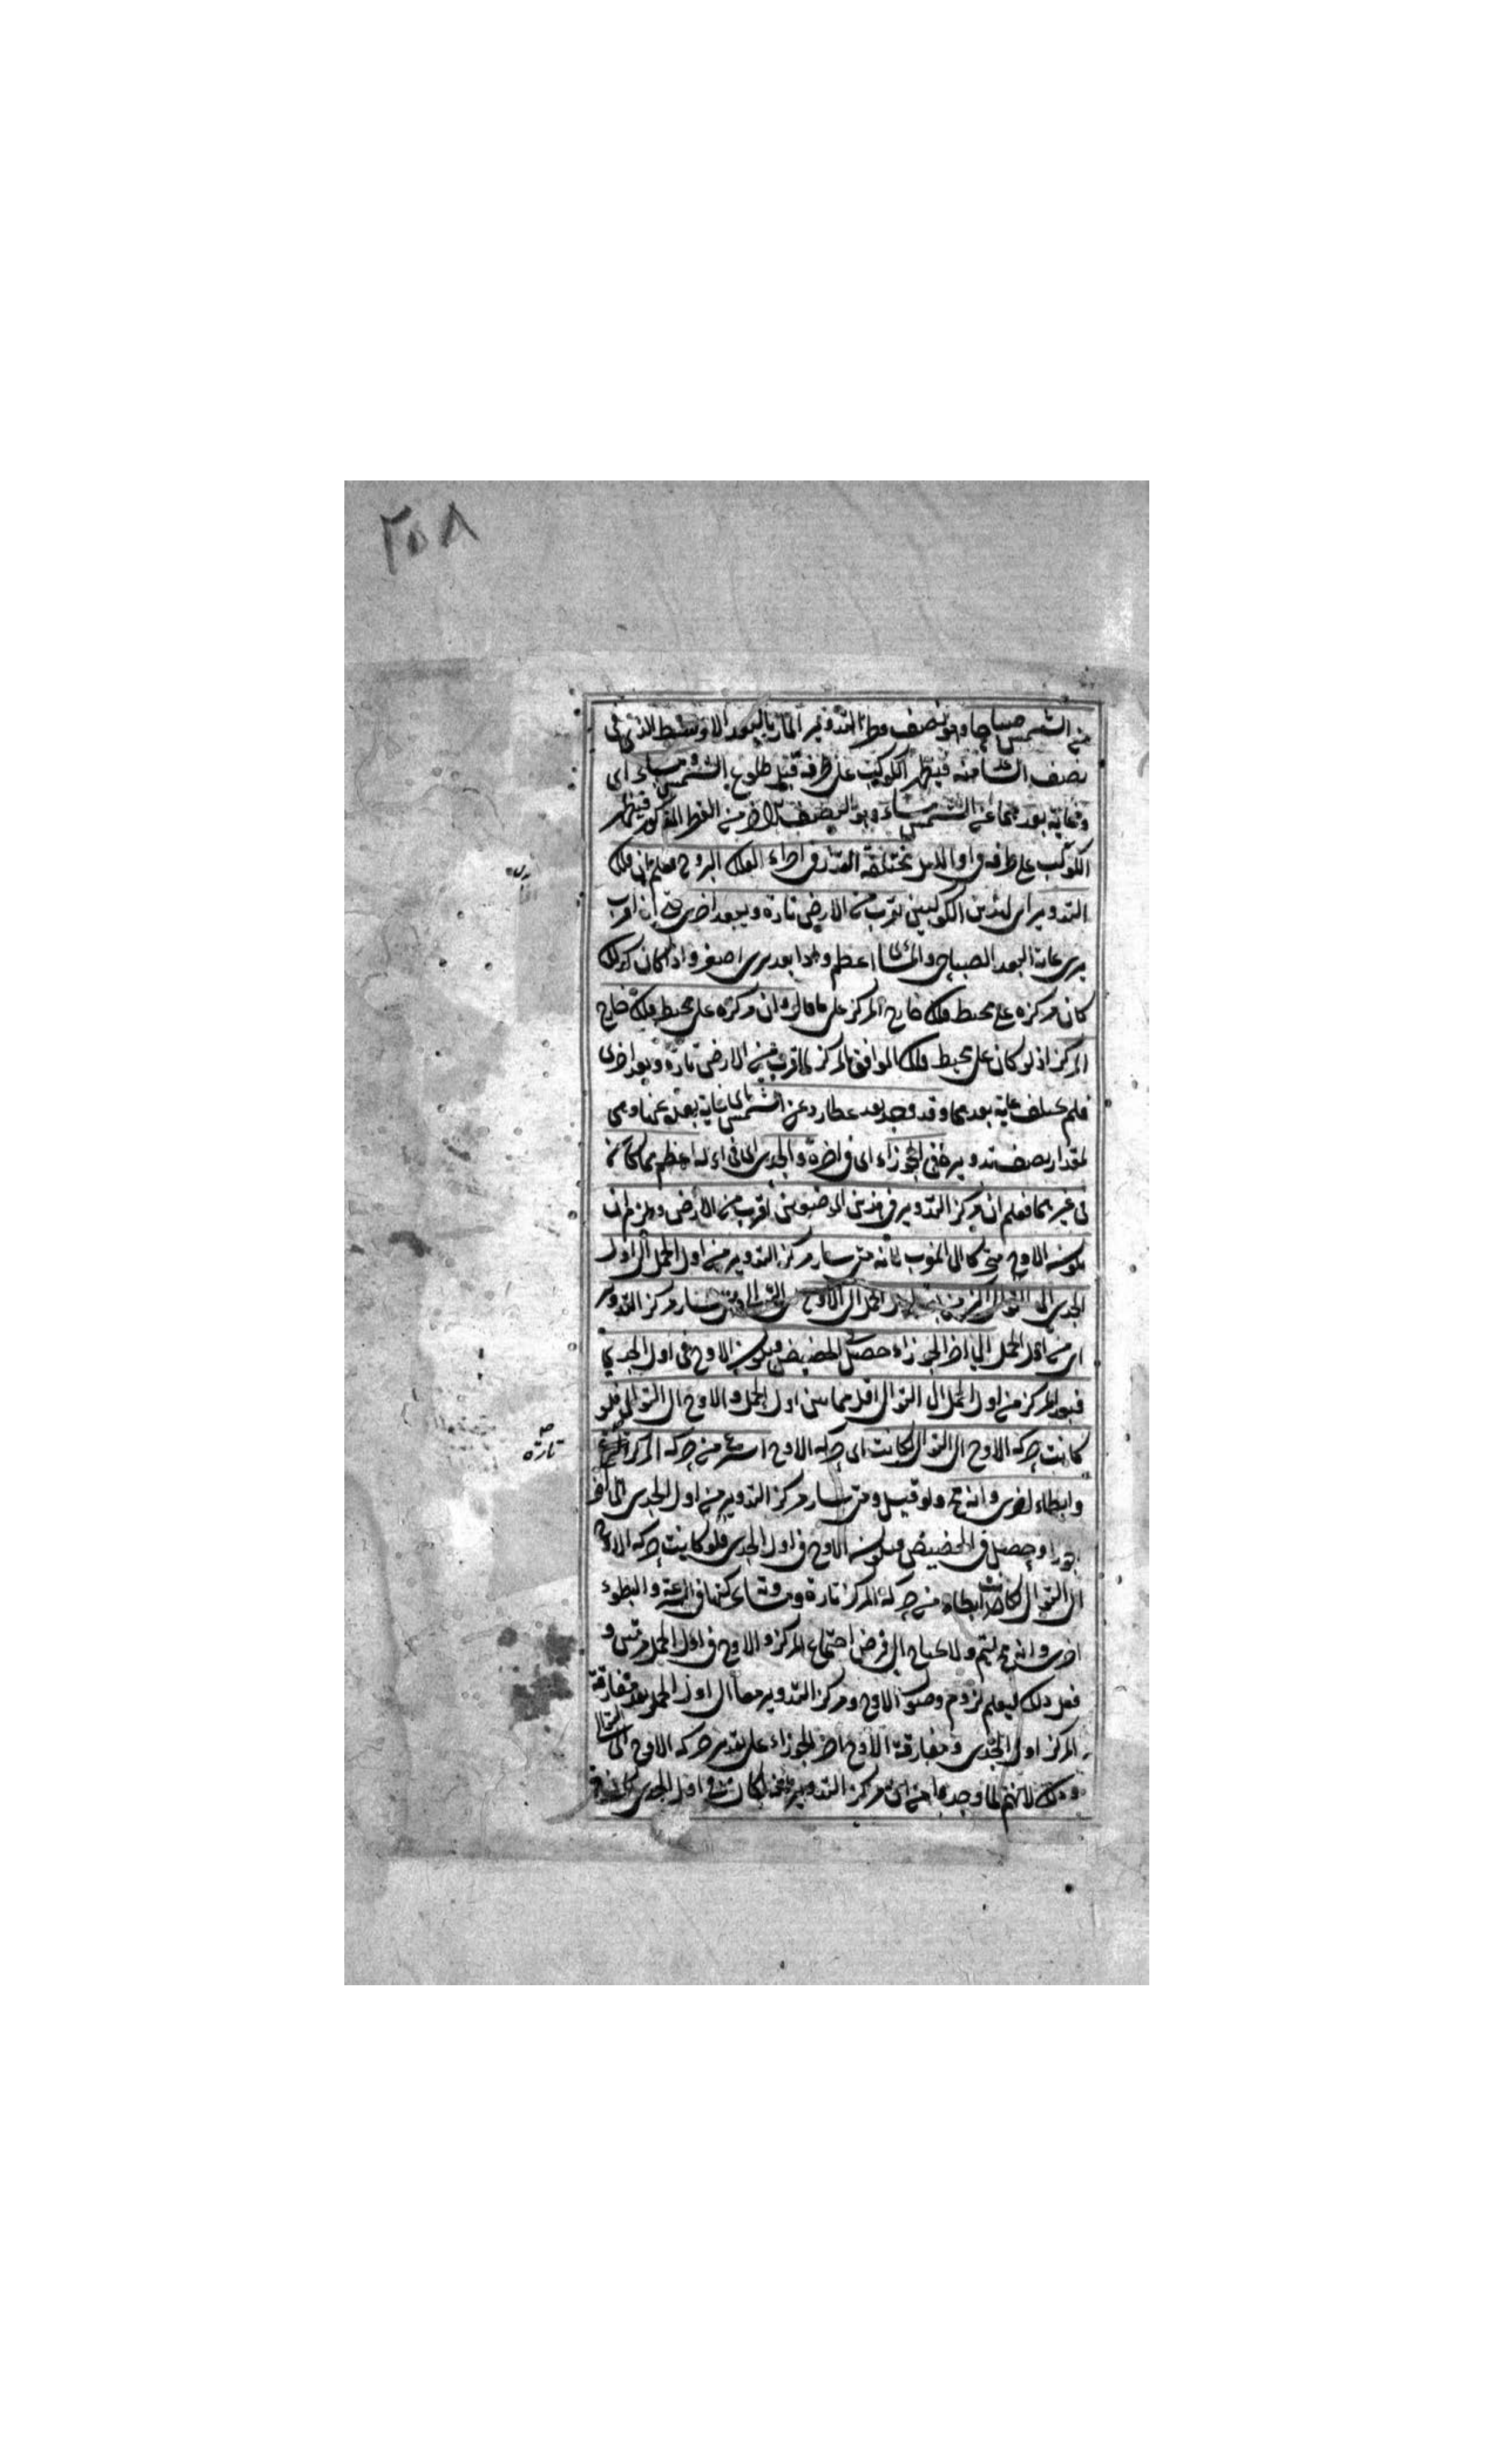 ٢٥٨
من الشمس صباحا وهو نصف قطر التدوير المار بالبعد الاوسط الذى فى
نصف الشامنه فيظهر الكوكب على طرفه قبيل طلوع الشمس ومساء اى
وغاية بعدهما عن الشمس مساء وهو النصف الاخر من القطر المذكور فيظهر
الكوكب على طرفه فى اوايل الليل مختلفة القدر فى اجزاء الفلك البروج فعلم ان فلك
التدوير اى لهذين الكوكبين يقرب من الارض تارة ويبعد اخرى حتى اذا قرب
يرى غاية البعد الصباحى والمسائى اعظم واذا بعد يرى اصغر واذا كان كذلك
كان مركزه على محيط فلك خارج المركز على ما قال وان مركزه على محيط فلك خارج
المركز اذ لو كان على محيط فلك الموافق المركز لما قرب من الارض تارة وبعد اخرى
فلم يختلف غاية بعدهما وقد وجد بعد عطارد عن الشمس اى غاية بعده عنها وهى
لمقدار نصف تدويره فى الجوزاء اى فى اخره والجدى اى فى اوله اعظم مما كانتا
فى غيرهما فعلم ان مركز التدوير فى هذين الموضعين اقرب من الارض ويلزم ان
يكون الاوج متحركا الى المغرب لانه متى سار مركز التدوير من اول الحمل الى اول
الجدى الى التوالى الحمل الى الاوج التوالى ومتى سار مركز التدوير
اى من اول الحمل الى اخر الجوزاء حصل الحضيض فيكون الاوج فى اول الجدى
فبعد المركز من اول الحمل الى التوالى اقل مما بين اول الحمل والاوج الى التوالى فلو
كانت حركة الاوج الى التوالى لكانت اى حركة الاوج اسرع من حركة المركز
تارة
وابطاء اخرى وانه مح ولو قيل ومتى سار مركز التدوير من اول الجدى الى اخر
الجوزاء حصل فى الحضيض فيكون الاوج فى اول الجدى فلو كانت حركة الاوج
الى التوالى لكانت ابطاء من حركة المركز تارة ومتشاركتها فى السرعة والبطوء
اخرى وانه مح لتم ولا يحتاج الى فرض اجتماع المركز والاوج فى اول الحمل
فعل ذلك ليعلم لزوم وصول الاوج ومركز التدوير معا الى اول الحمل بعد مفارقة
المركز اول الجدى ومفارقة الاوج اخر الجوزاء على تقدير حركة الاوج الى التوالى
وذلك لانهم لما وجدوا من ان مركز التدوير اول الجدى كان